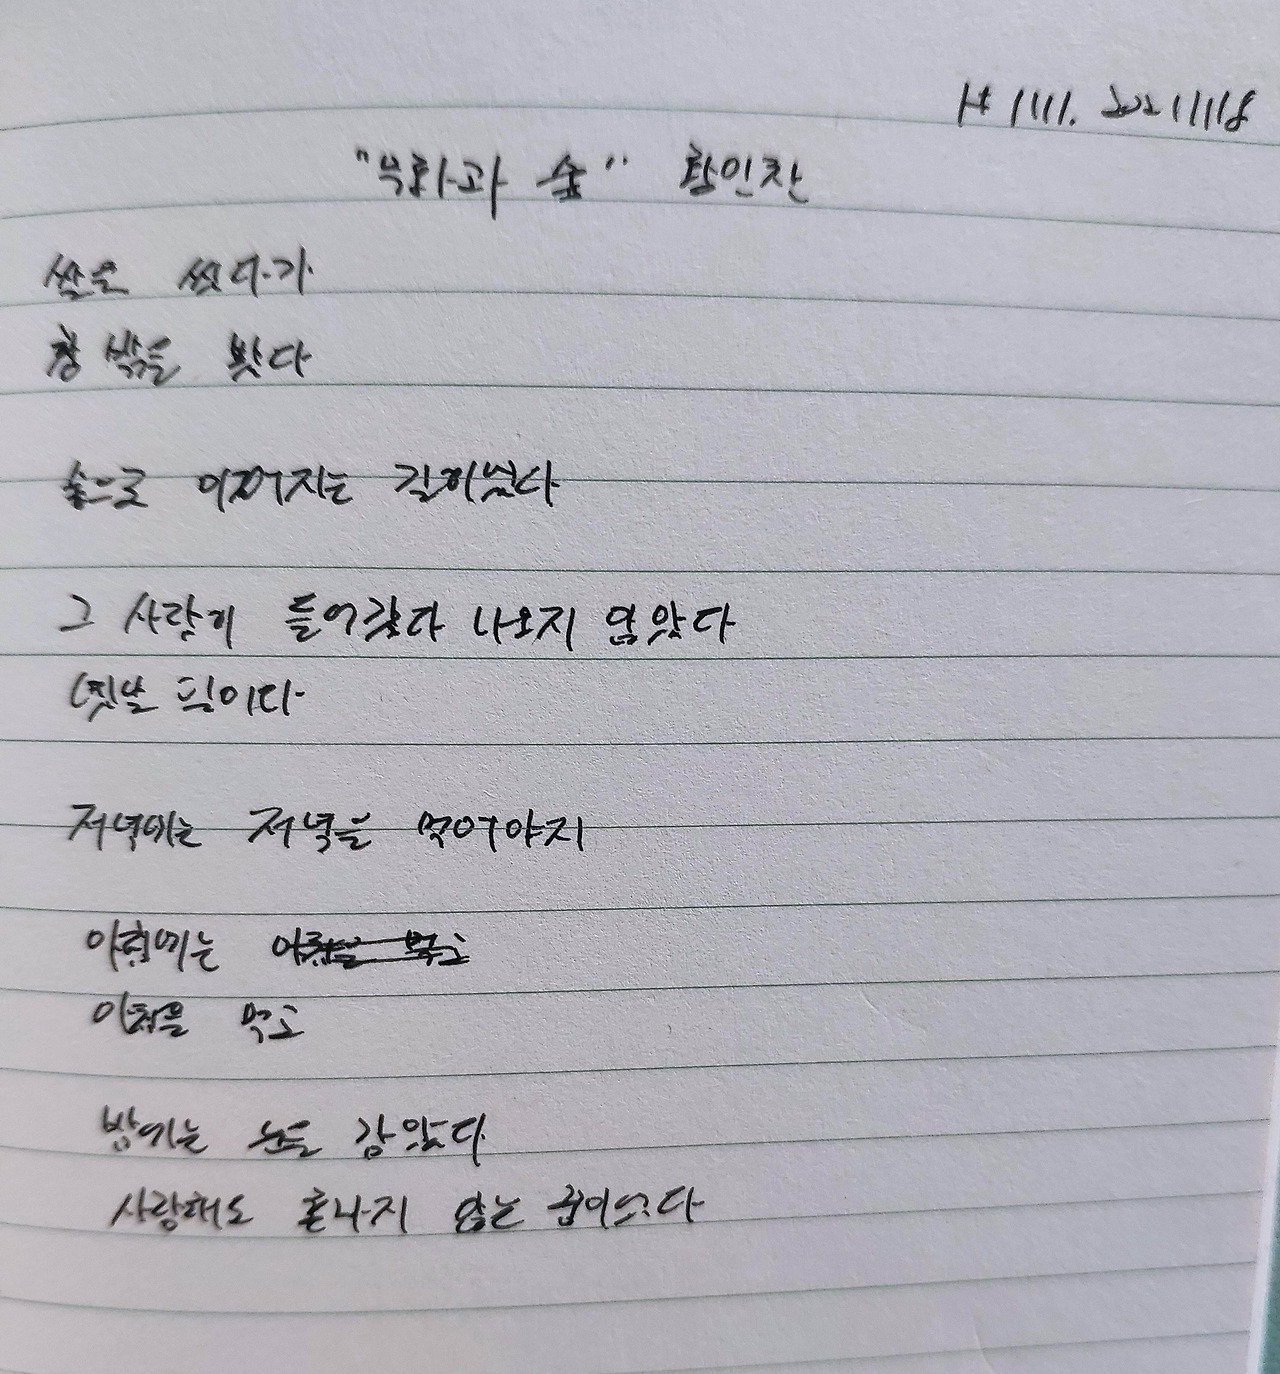 H 1111. 20211118
"무화과 숲" 황인찬
쌀을 씻다가
창 밖을 봤다
숲으로 이어지는 길이었다
그 사람이 들어갔다 나오지 않았다
옛날 일이다
저녁에는 저녁을 먹어야지
아침에는 아침을 먹고
아침을 먹고
밤에는 눈을 감았다
사랑해도 혼나지 않는 꿈이었다